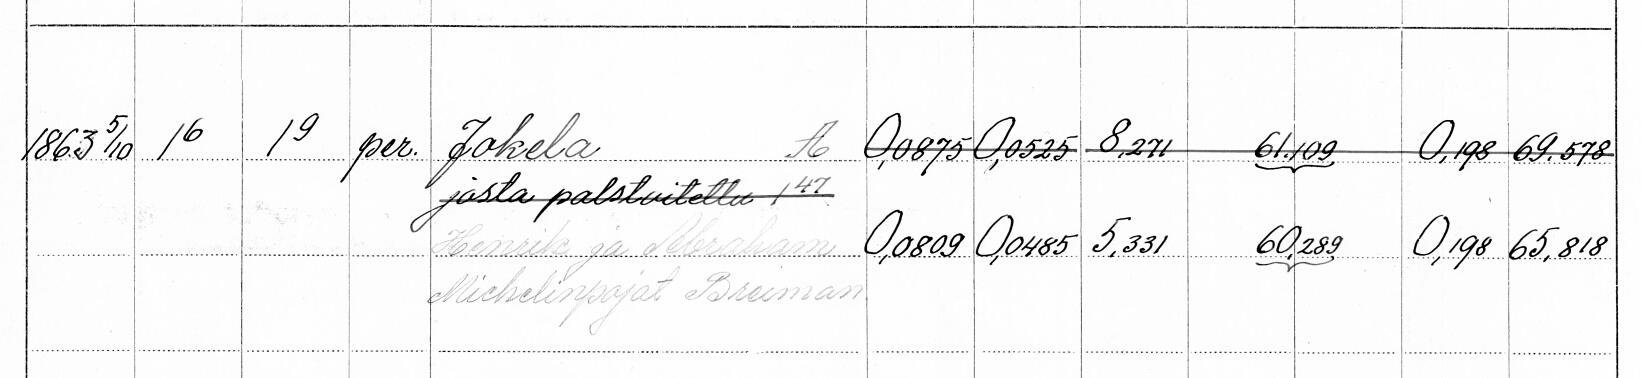 1863 5/10 16 19 per. Jokela A 0,0875 0,0525 8,271 61.109 0,198 69.578
josta palstoitettu 1 47
Henrik ja Abraham 0,0809 0,0485 5,331 60,289 0,198 65,818
Michelinpojat Breiman